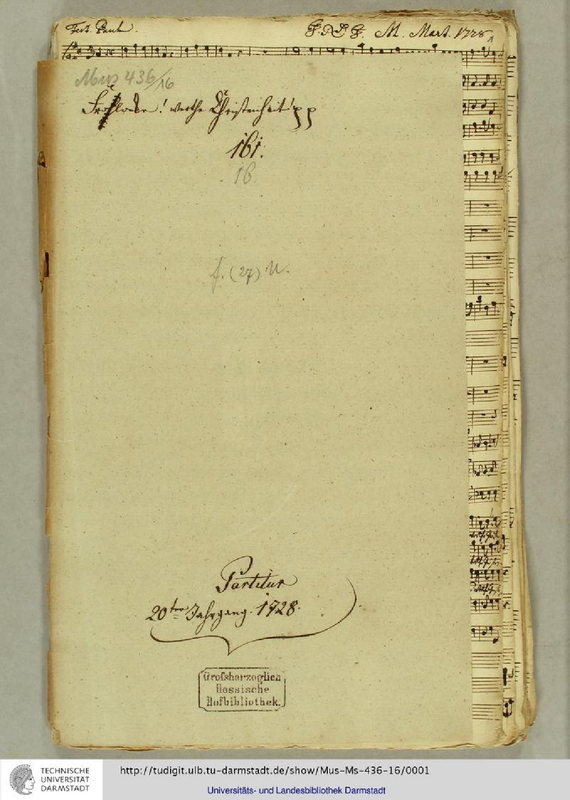 Fest. Paul. G. D. G. M. Mart. 1728.
Mus 436/16
Frohlocke! werthe Christenheit! pp
161.
16
f. (27) u.
Partitur
20ter Jahrgang. 1728.
Grofsherzoglich
Hessische
Hofbibliothek.
TECHNISCHE
UNIVERSITÄT
DARMSTADT
http://tudigit.ulb.tu-darmstadt.de/show/Mus-Ms-436-16/0001
Universitäts- und Landesbibliothek Darmstadt